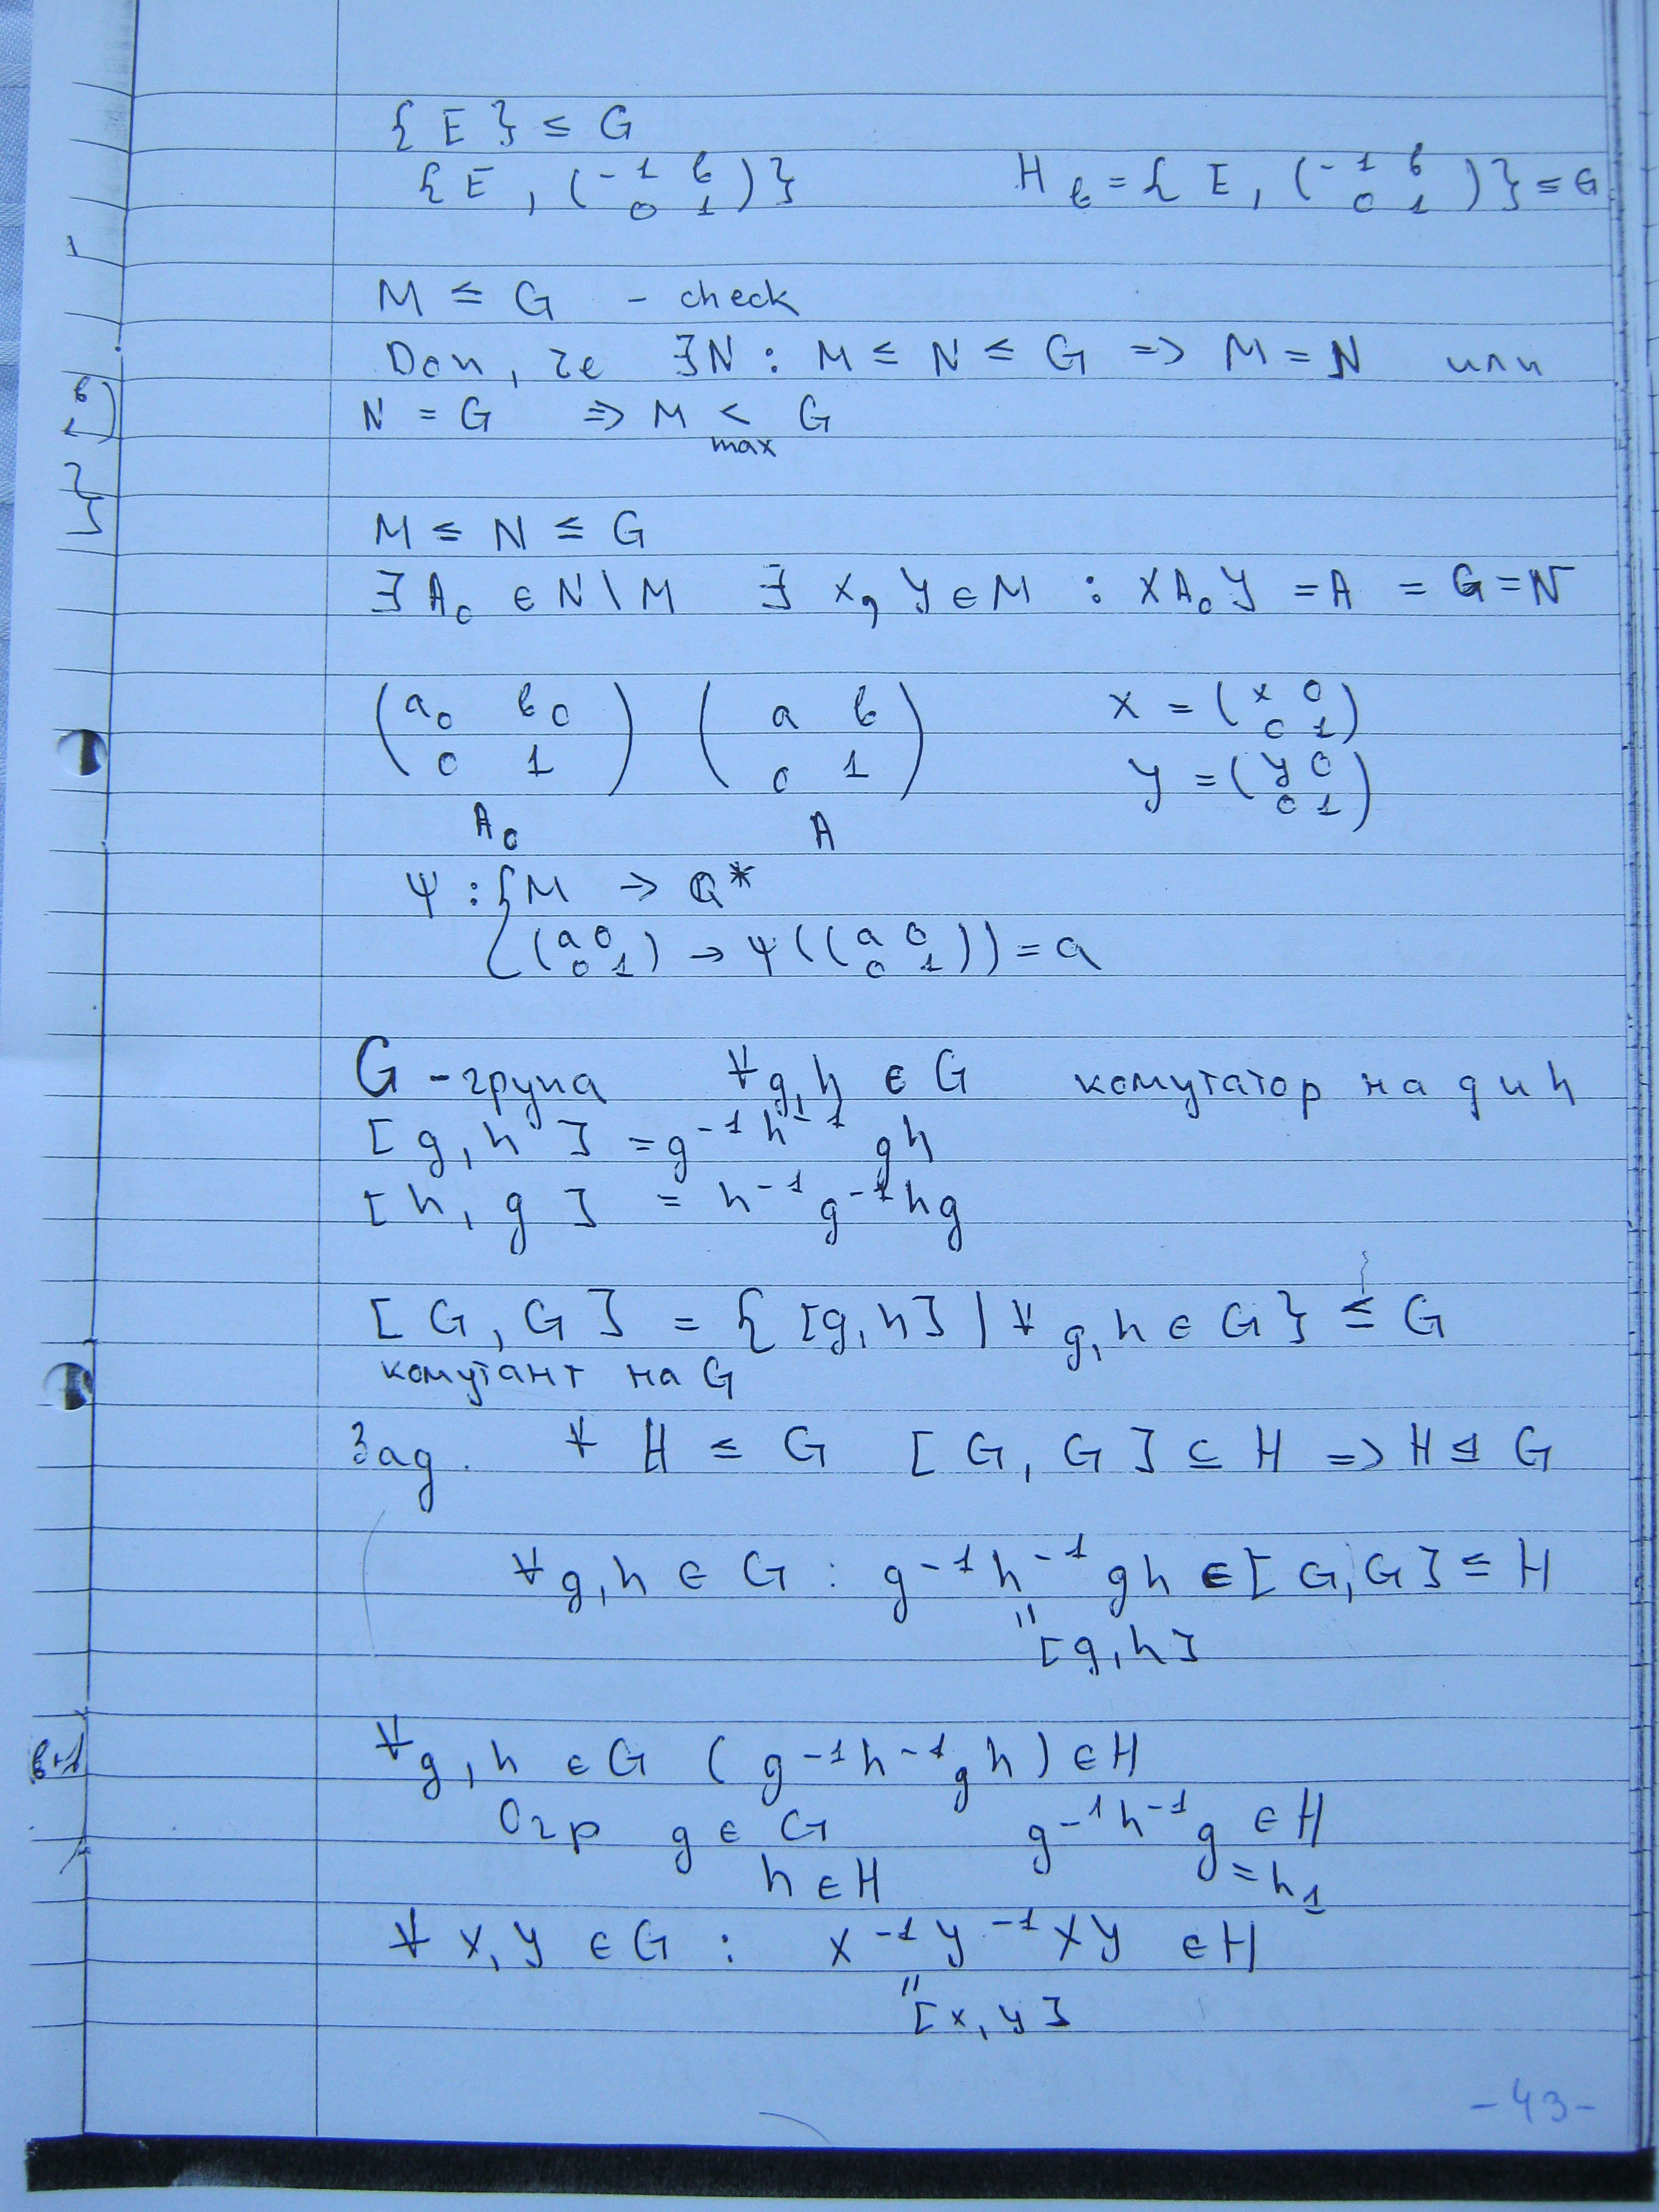 { E } ≤ G
{ E , (-1 в; 0 1) }    H_в = { E , (-1 в; 0 1) } ≤ G
M ≤ G - check
Доп, че ∃N : M ≤ N ≤ G => M = N или
N = G => M <_max G
M ≤ N ≤ G
∃ A₀ ∈ N \ M ∃ X, Y ∈ M : X A₀ Y = A = G = N
(a₀ в₀; 0 1) (a в; 0 1)    X = (x 0; 0 1)
Y = (y 0; 0 1)
A₀ A
Ψ : { M → Q*
(a 0; 0 1) → Ψ((a 0; 0 1)) = a
G - група ∀ g, h ∈ G комутатор на g и h
[ g, h ] = g⁻¹ h⁻¹ g h
[ h, g ] = h⁻¹ g⁻¹ h g
[ G, G ] = { [g, h] | ∀ g, h ∈ G } ≤ G
комутант на G
Зад. ∀ H ≤ G [ G, G ] ⊆ H => H ⊴ G
∀ g, h ∈ G : g⁻¹ h⁻¹ g h ∈ [ G, G ] ≤ H
" [g, h]
∀ g, h ∈ G ( g⁻¹ h⁻¹ g h ) ∈ H
Огр g ∈ G    g⁻¹ h⁻¹ g ∈ H
h ∈ H    = h₁
∀ x, y ∈ G : x⁻¹ y⁻¹ x y ∈ H
" [x, y]
-43-